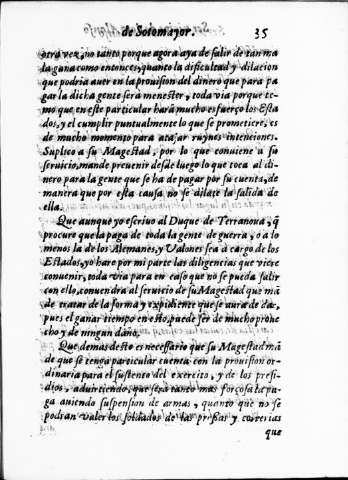 de Sotomayor. 35
otra vez, no tanto porque agora aya de salir de tan ma
la guna como entonces, quanto la dificultad y dilacion
que podria auer en la prouision del dinero que para pa
gar la dicha gente será menester, toda via porque te-
mo que en este particular hará mucho esfuerço los Esta
dos, y el cumplir puntualmente lo que se prometiere, es
de mucho momento para atajar ruynes intenciones.
Suplico a su Magestad, por lo que conuiene a su
seruicio, mande preuenir desde luego lo que toca al di-
nero para la gente que se ha de pagar por su cuenta, de
manera que por esta causa no se dilate la salida de
ella.
Que aunque yo escriuo al Duque de Terranoua, q̃
procure que la paga de toda la gente de guerra, o a lo
menos la de los Alemanes, y Valones sea à cargo de los
Estados, yo hare por mi parte las diligencias que viere
conuenir, toda via para en caso que no se pueda salir
con ello, conuendrá al seruicio de su Magestad que mã
de tratar de la forma y expidiente que se aura de dar,
pues el ganar tiempo en esto, puede ser de mucho proue
cho y de ningun daño.
Que demas desto es necessario que su Magestad mã
de que se tenga particular cuenta con la prouision or-
dinaria para el sustento del exercito, y de los presi-
dios, aduirtiendo, que será tanto mas forçosa la pa-
ga auiendo suspension de armas, quanto que no se
podran valer los soldados de las presas y correrias
que